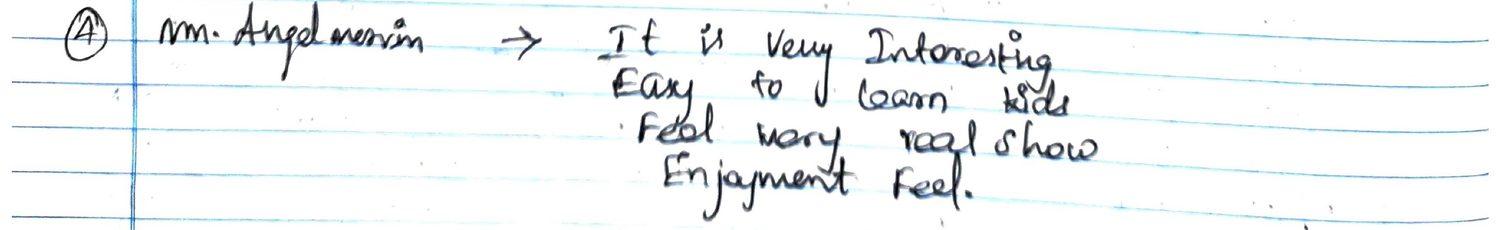 ④ M. Angel mervin → It is very Interesting
Easy to learn kids
Feel very real show
Enjoyment Feel.